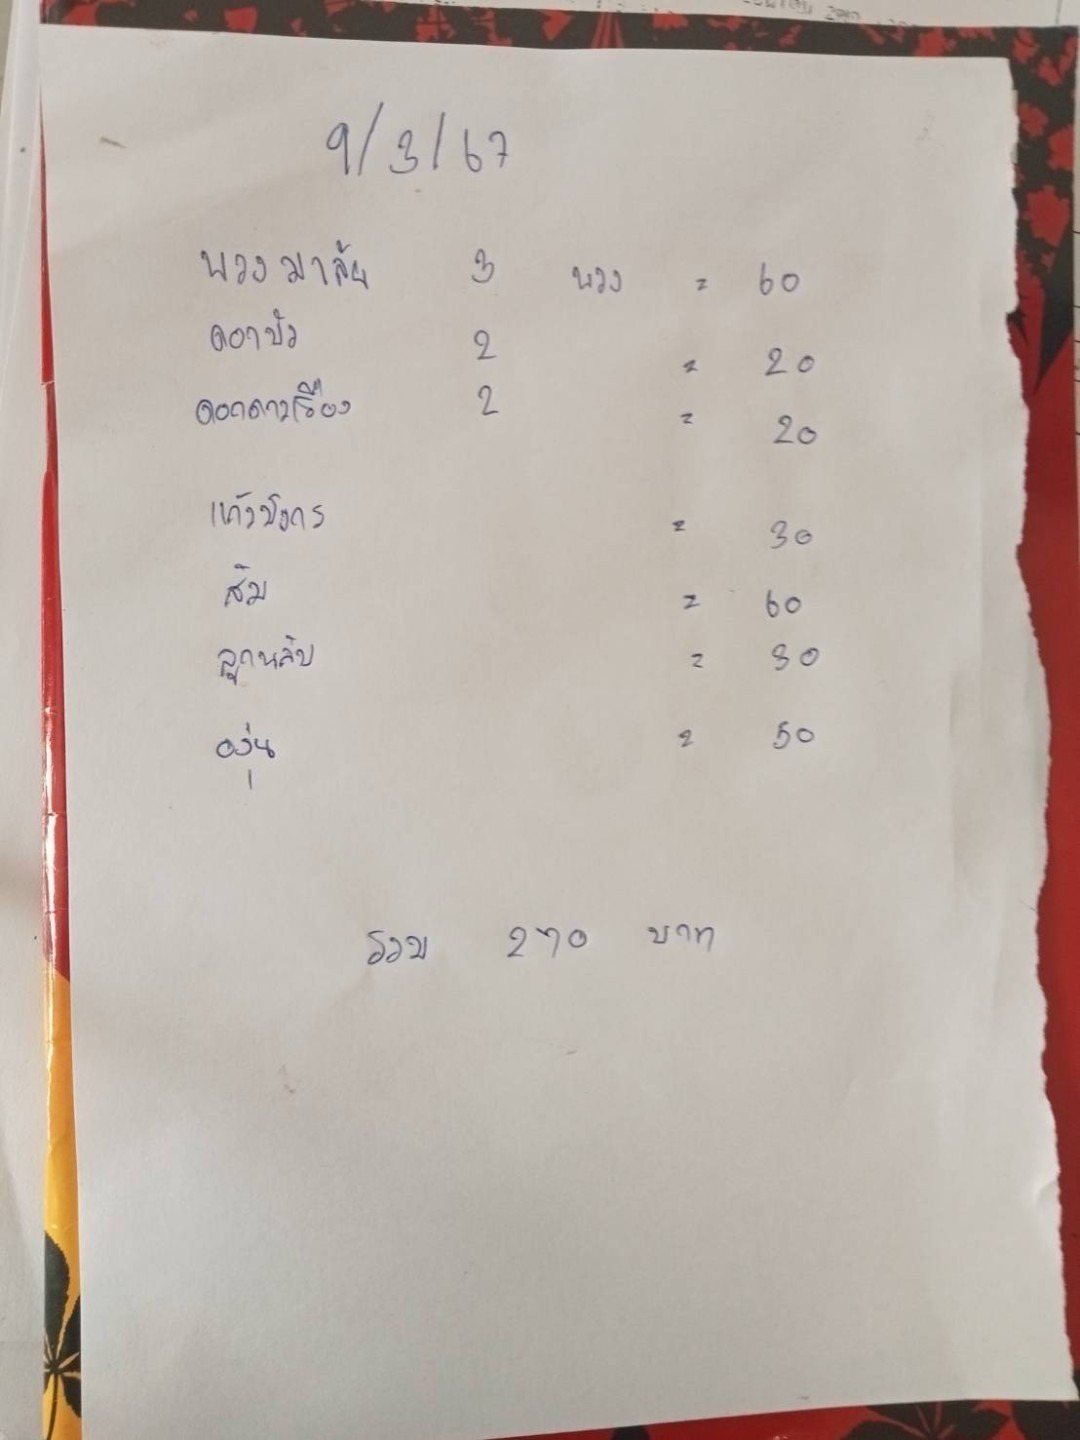 9/3/67
พวงมาลัย 3 พวง = 60
ดอกบัว 2 = 20
ดอกดาวเรือง 2 = 20
แก้วมังกร = 30
ส้ม = 60
ลูกพลับ = 30
องุ่น = 50
รวม 270 บาท